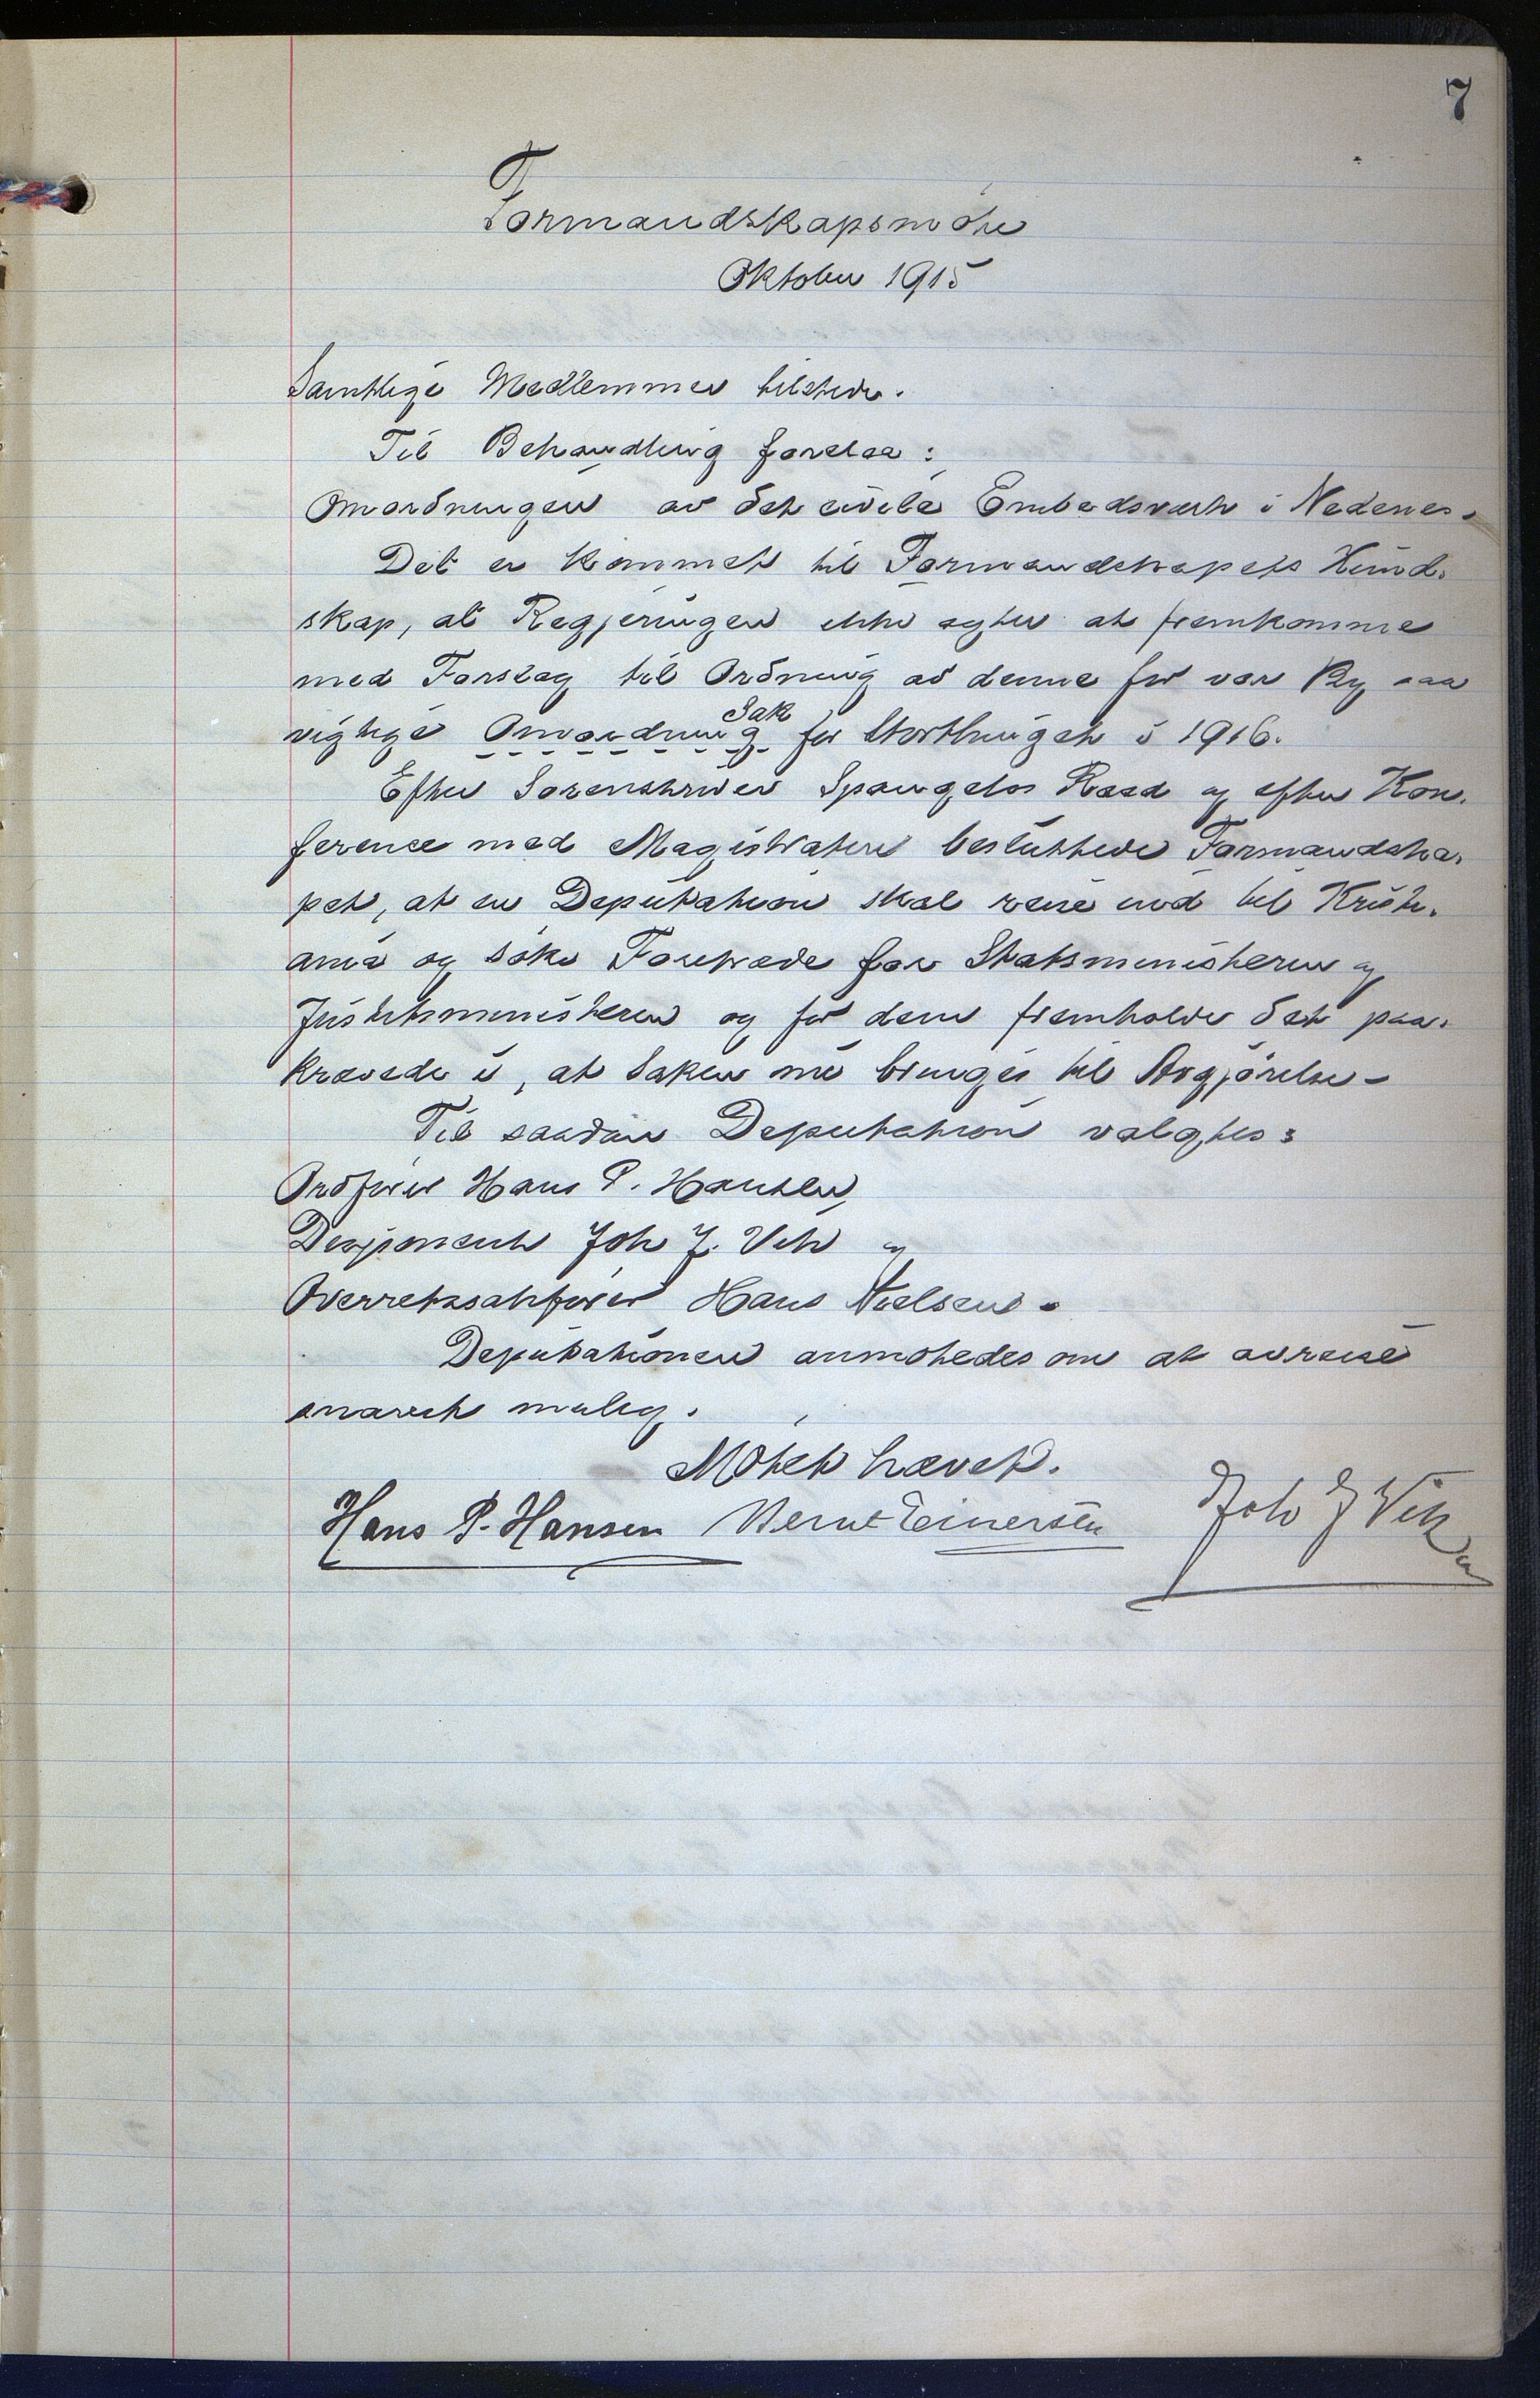 7
Formandskapsmøte
Oktober 1915
Samtlige Medlemmer tilstede.
Til Behandling forelaa:
Omordningen av det civile Embedsverk i Nedenes.
Det er kommet til Formandskapets Kund-
skap, at Regjeringen ikke agter at fremkomme
med Forslag til Ordning av denne for vor By saa
vigtige Omordning Sak for Storthinget i 1916.
Efter Sorenskriver Spangelos Raad og efter Kon-
ference med Magistraten besluttede Formandska-
pet, at en Deputation skal reise ind til Kristi-
ania og søke Foretræde for Statsministeren og
Justitsministeren og for dem fremholde det paa-
krævede i, at Saken nu bringes til Avgjørelse -
Til saadan Deputation valgtes:
Ordfører Hans P. Hansen,
Disponent Joh J. Vik og
Overretssakfører Hans Nielsen.
Deputationen anmotedes om at avreise
snarest mulig.
Møtet hævet.
Hans P. Hansen Bernt Einersen Joh J Vik